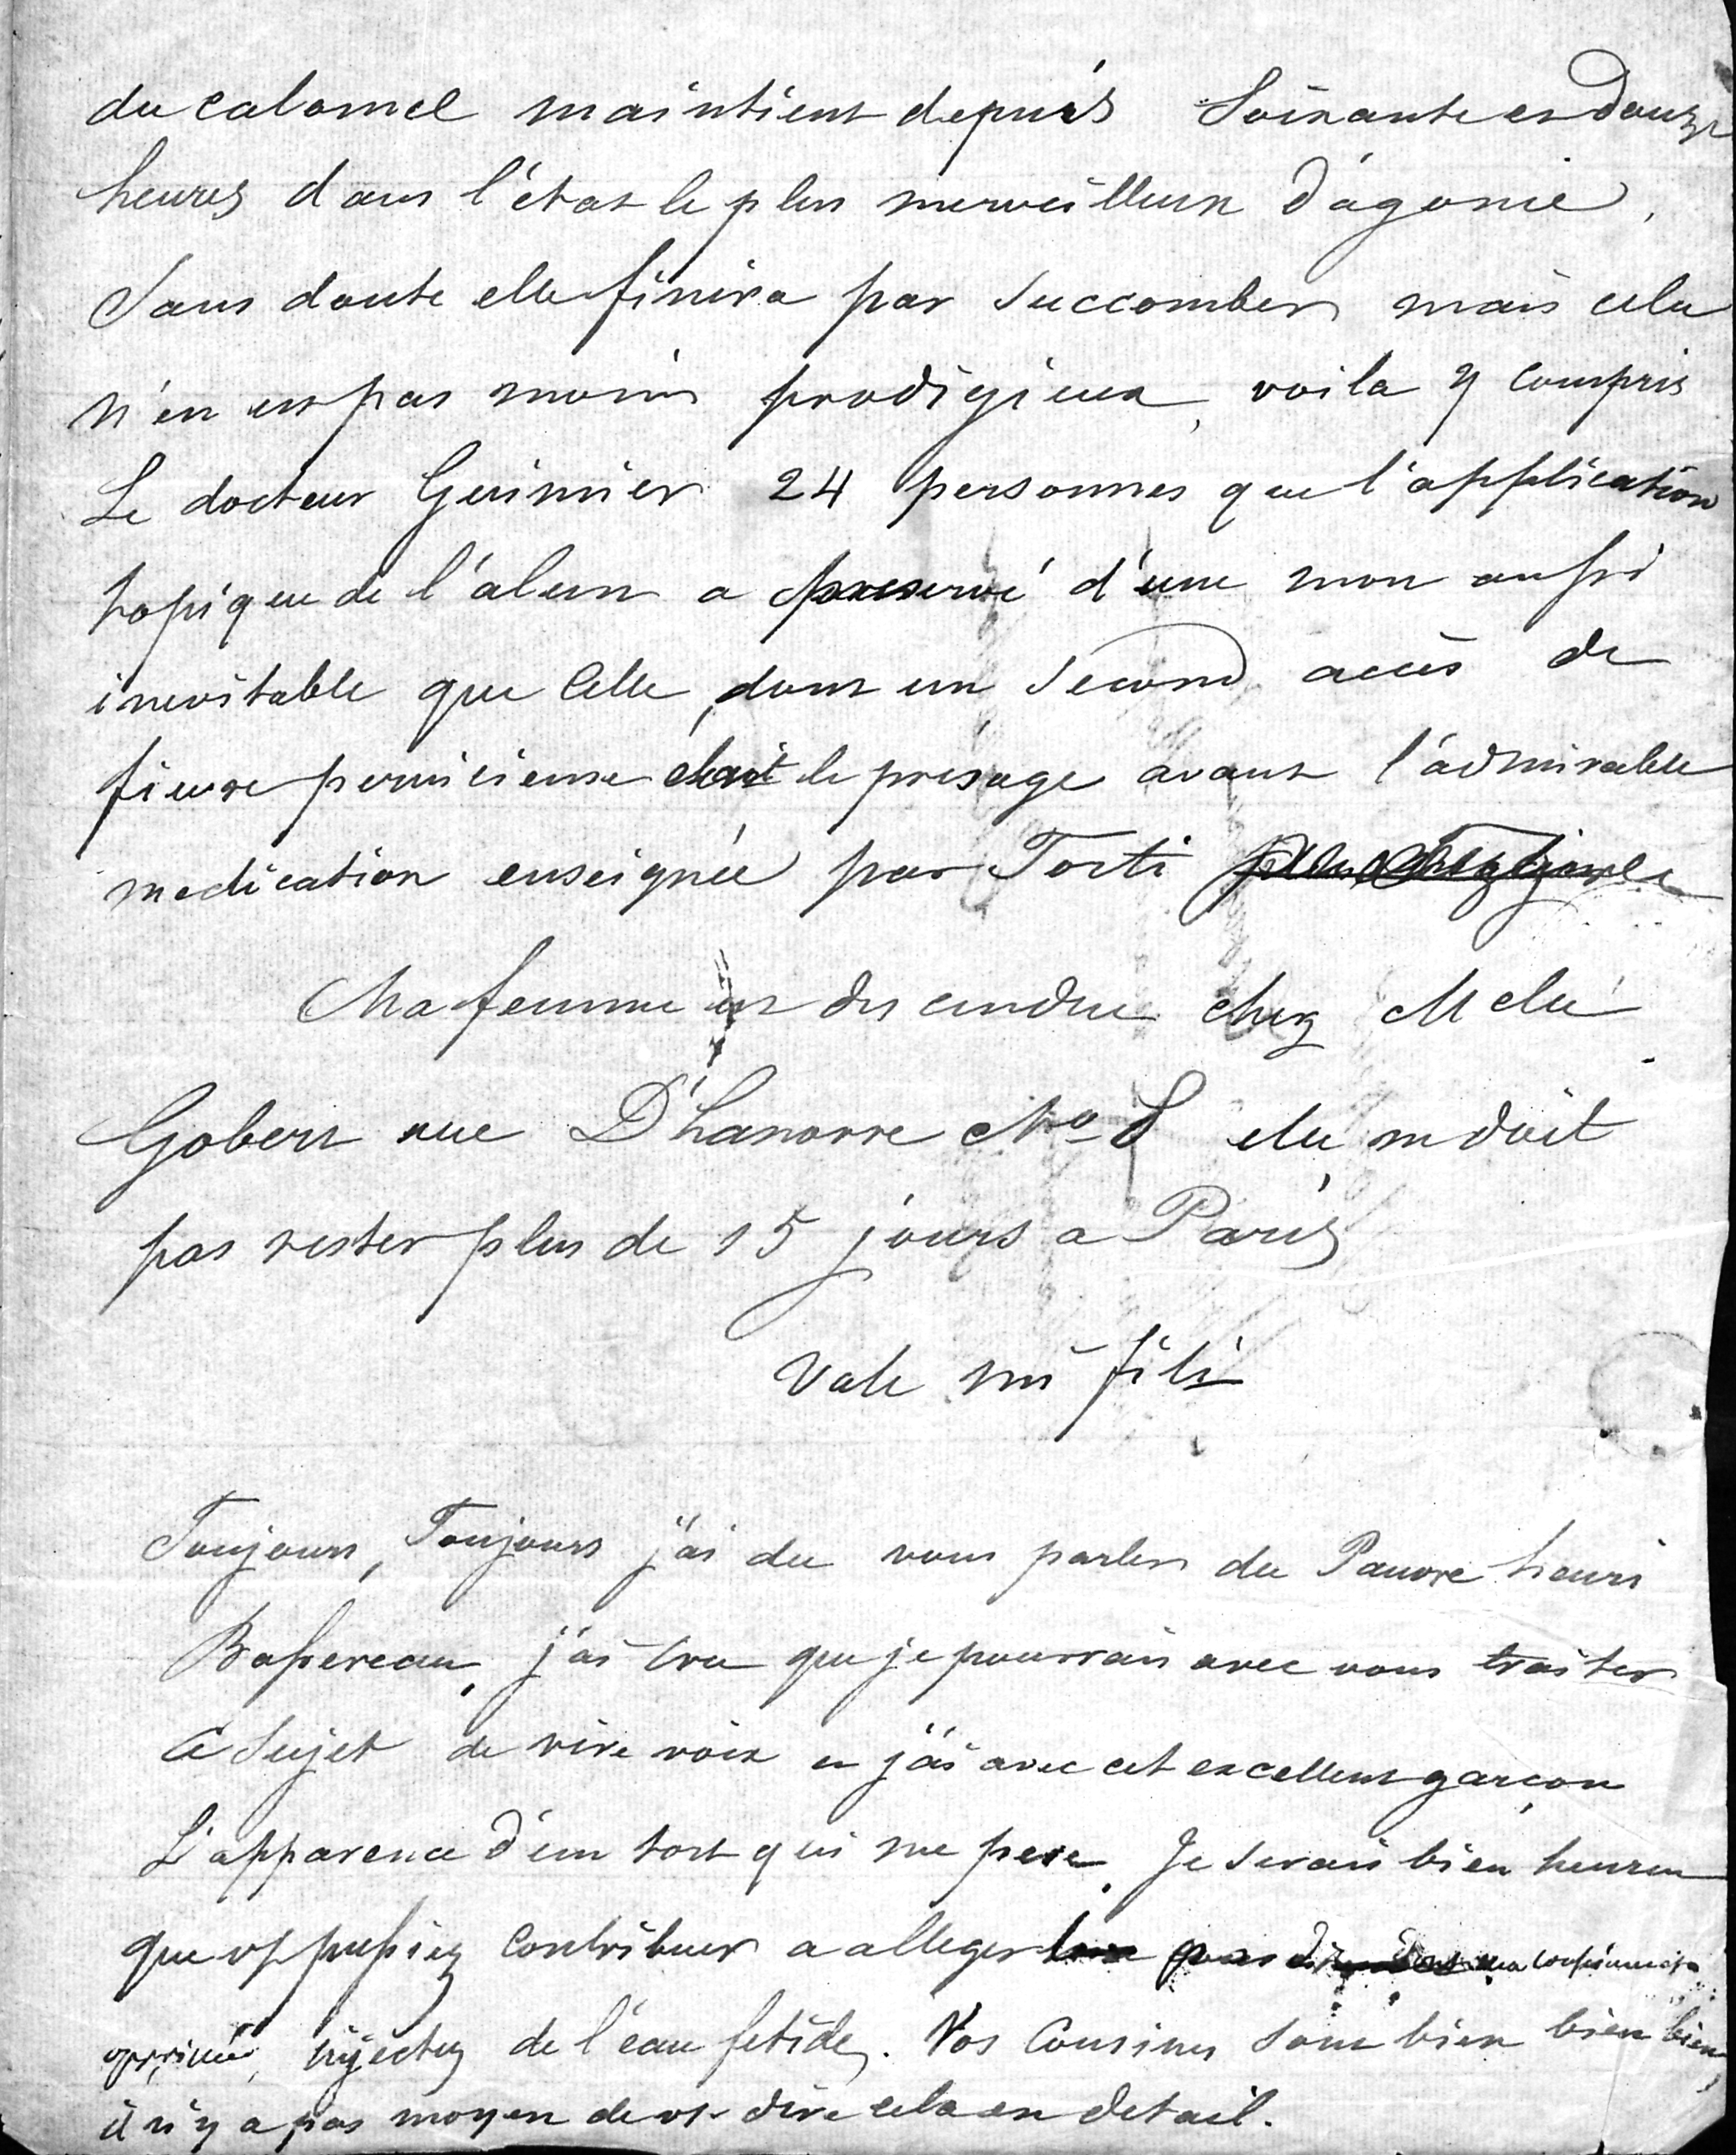 du calomel maintient depuis Soixante et Douze
heures dans l'état le plus merveilleux d'agonie,
Sans doute elle finira par Succomber mais cela
n'en est pas moins prodigieux, voila y compris
Le docteur Guimier 24 personnes que l'application
topique de l'alun a preservé d'une mort aussi
inevitable que Celle, dont un Second accès de
fievre pernicieuse était le presage avant l'admirable
medication enseignée par Torti
Ma femme est descendue chez Melle
Gobert rue D'hanovre No 8 elle ne doit
pas rester plus de 15 jours a Paris
Vale mi fili
Toujours, Toujours j'ai du vous parler du Pauvre henri
Bassereau, j'ai Cru que je pourrais avec vous traiter
Ce Sujet de vive voix et j'ai avec cet excellent garçon
L'apparence d'un tort qui me pese. Je Serais bien heureux
que vs pussiez Contribuer a alleger ma conscience
opprimée, injectez de l'eau fetide. Vos Cousines Sont bien bien bien,
il n'y a pas moyen de vs dire cela en detail.